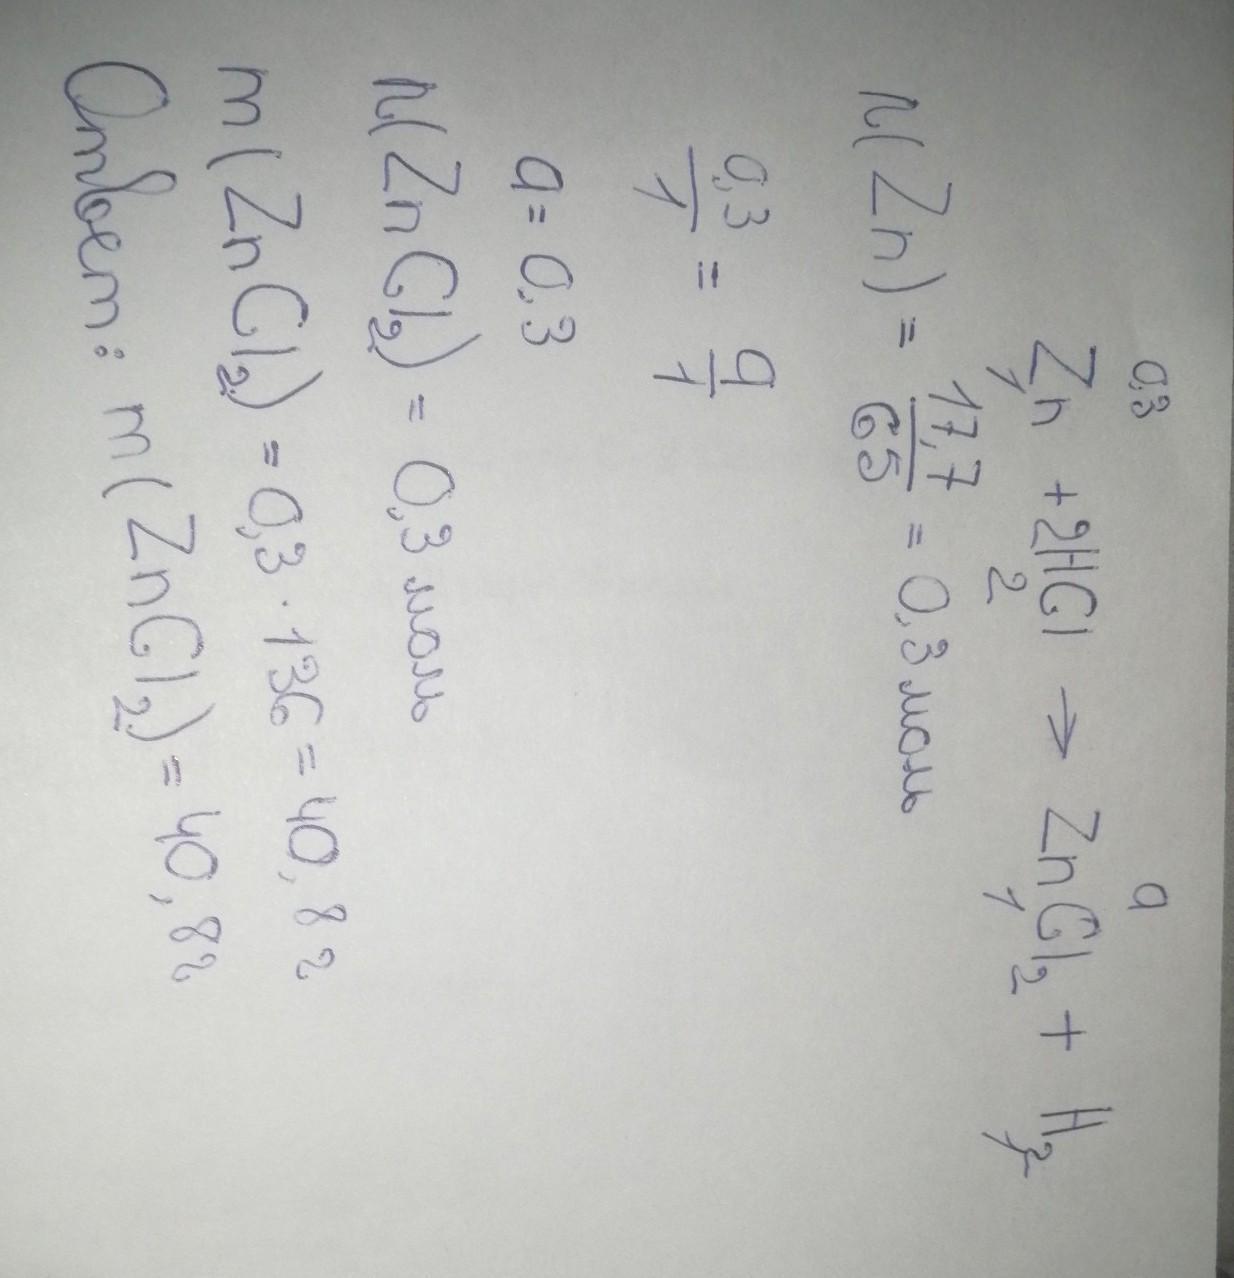 0,3 a
Zn + 2HCl → ZnCl₂ + H₂
1 2 1 1
n(Zn) = 17,7/65 = 0,3 моль
0,3/1 = a/1
a = 0,3
n(ZnCl₂) = 0,3 моль
m(ZnCl₂) = 0,3 · 136 = 40,8 г
Ответ: m(ZnCl₂) = 40,8 г